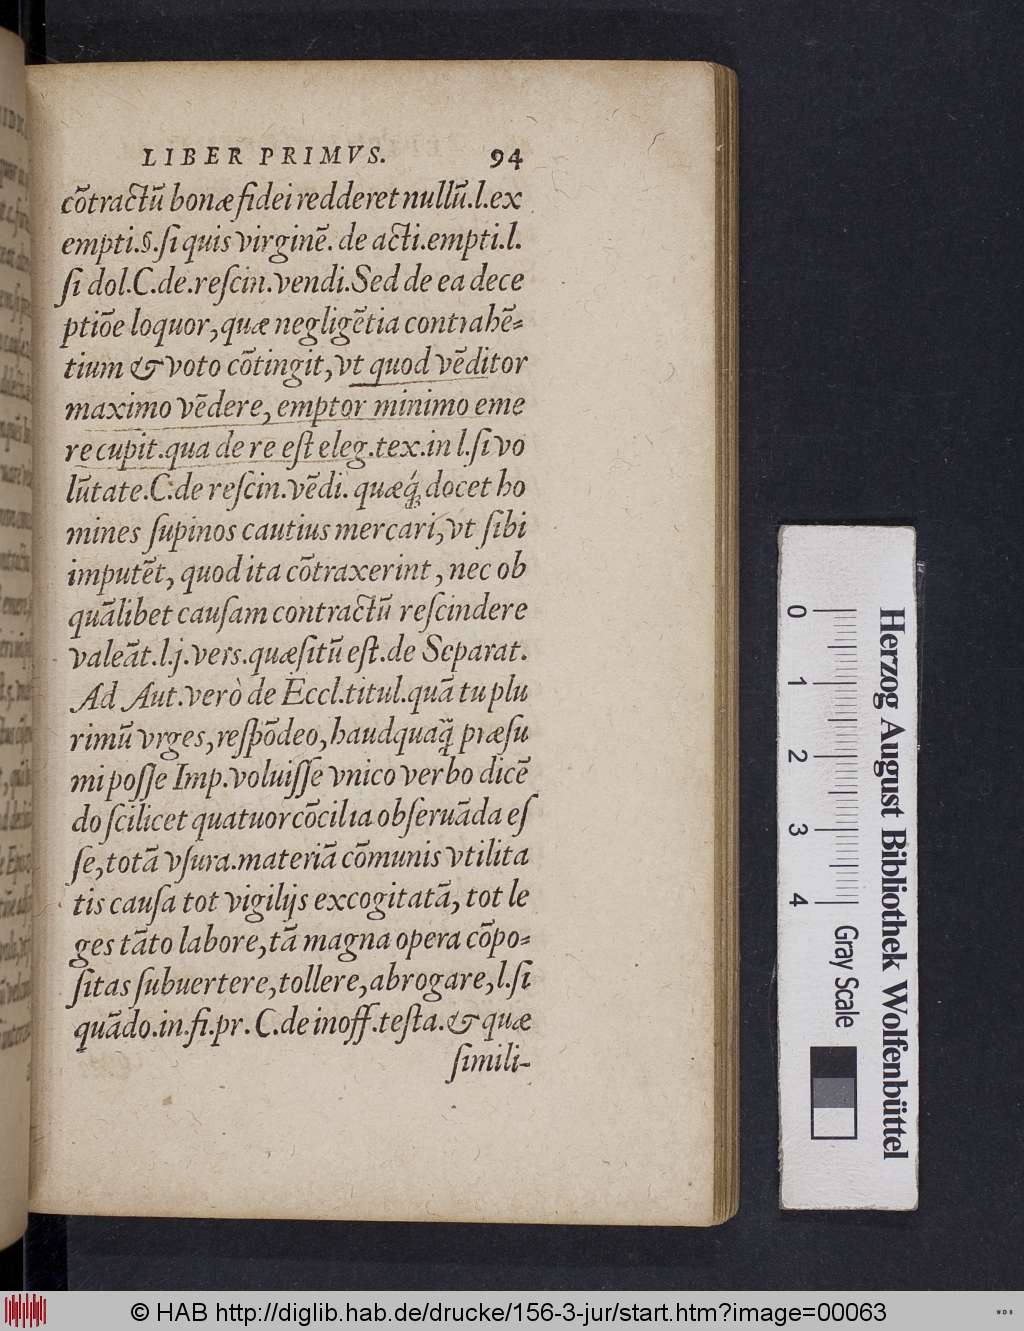 LIBER PRIMVS. 94
cõtractũ bonæ fidei redderet nullũ.l.ex
empti.§.si quis virginẽ. de acti.empti.l.
si dol.C.de.rescin.vendi.Sed de ea dece
ptiõe loquor, quæ negligẽtia contrahẽ=
tium & voto cõtingit, vt quod vẽditor
maximo vẽdere, emptor minimo eme
re cupit.qua de re est eleg.tex.in l.si vo
lũtate.C.de rescin.vẽdi. quæq́; docet ho
mines supinos cautius mercari, vt sibi
imputẽt, quod ita cõtraxerint, nec ob
quãlibet causam contractũ rescindere
valeãt.l.j.vers.quæsitũ est.de Separat.
Ad Aut.verò de Eccl.titul.quã tu plu
rimũ vrges, respõdeo, haudquaq̃ præsu
mi posse Imp.voluisse vnico verbo dicẽ
do scilicet quatuor cõcilia obseruãda es
se, totã vsura.materiã cõmunis vtilita
tis causa tot vigilijs excogitatã, tot le
ges tãto labore, tã magna opera cõpo=
sitas subuertere, tollere, abrogare, l.si
quãdo.in.fi.pr.C.de inoff.testa.& quæ
simili-
IBER
0 1 2 3 4
Gray Scale
Herzog August Bibliothek Wolfenbüttel
© HAB http://diglib.hab.de/drucke/156-3-jur/start.htm?image=00063